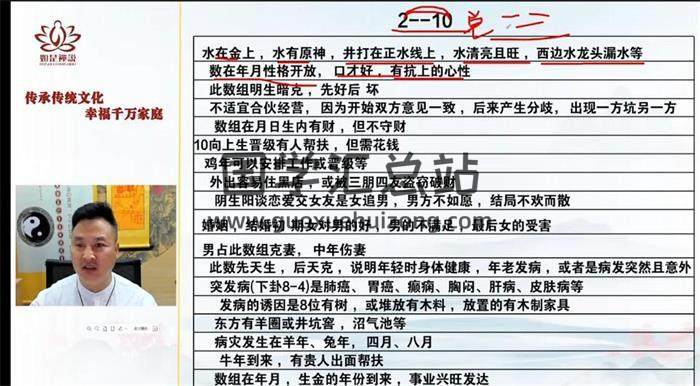 如是禅说
传承传统文化
幸福千万家庭
2--10 兑
水在金上，水有原神，井打在正水线上，水清亮且旺，西边水龙头漏水等
数在年月性格开放，口才好，有抗上的心性
此数组明生暗克，先好后 坏
不适宜合伙经营，因为开始双方意见一致，后来产生分歧，出现一方坑另一方
数组在月日生内有财，但不守财
10向上生晋级有人帮扶，但需花钱
鸡年可以安排工作或晋级等
外出容易住黑店，或被三朋四友盗窃破财
阴生阳谈恋爱交女友是女追男，男方不如愿，结局不欢而散
婚姻，结婚初期女对男的好，男的不满足，最后女的受害
男占此数组克妻，中年伤妻
此数先天生，后天克，说明年轻时身体健康，年老发病，或者是病发突然且意外
突发病(下卦8-4)是肺癌、胃癌、癫痫、胸闷、肝病、皮肤病等
发病的诱因是8位有树，或堆放有木料，放置的有木制家具
东方有羊圈或井坑窖，沼气池等
病灾发生在羊年、兔年，四月、八月
牛年到来，有贵人出面帮扶
数组在年月，生金的年份到来，事业兴旺发达
国学汇总站
www.guoxuehuizong.com